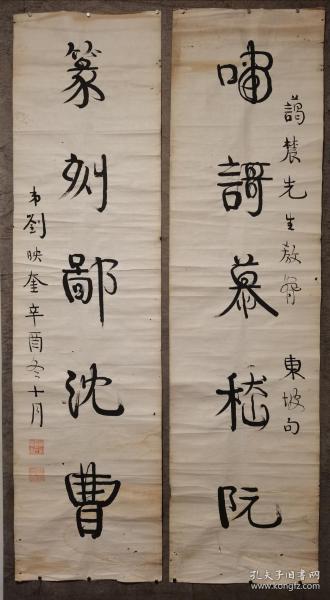 藹農先生教
東坡句
嘯謌慕嵇阮
篆刻鄙沈曹
弟劉映奎辛酉冬十月
孔夫子旧书网